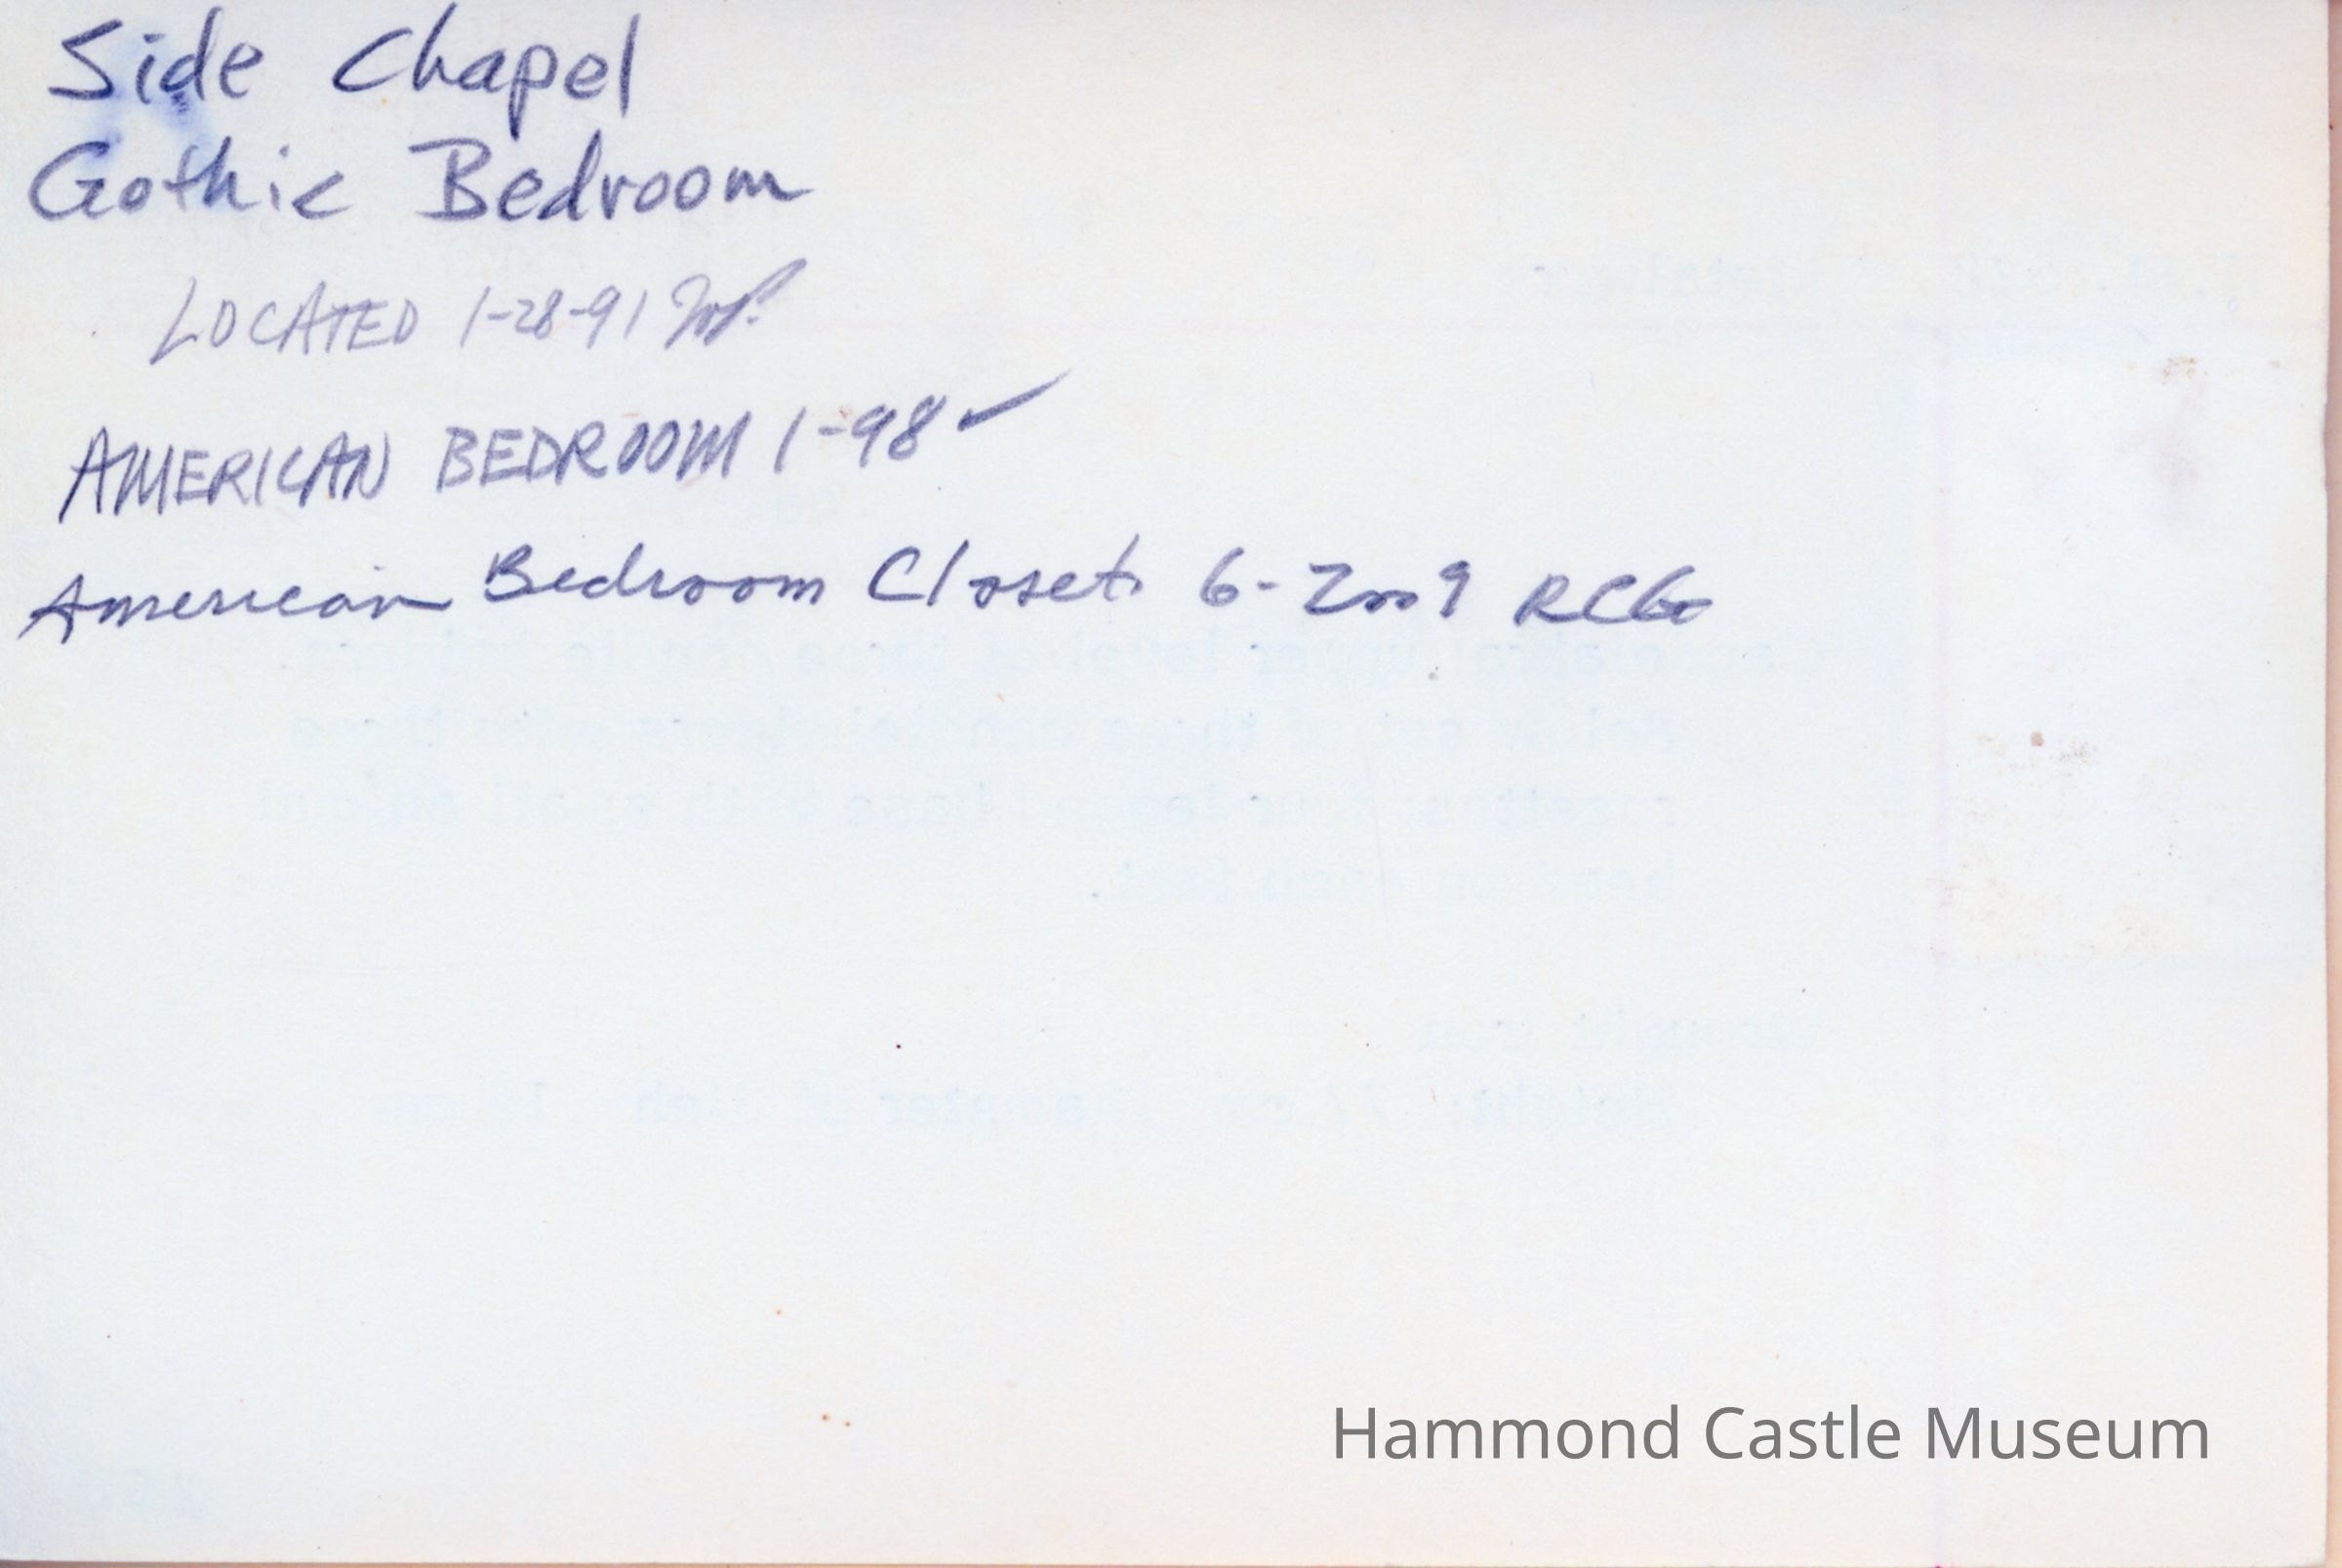 Side Chapel
Gothic Bedroom
LOCATED 1-28-91
AMERICAN BEDROOM 1-98 ✓
American Bedroom Closet 6-2009 RCG
Hammond Castle Museum